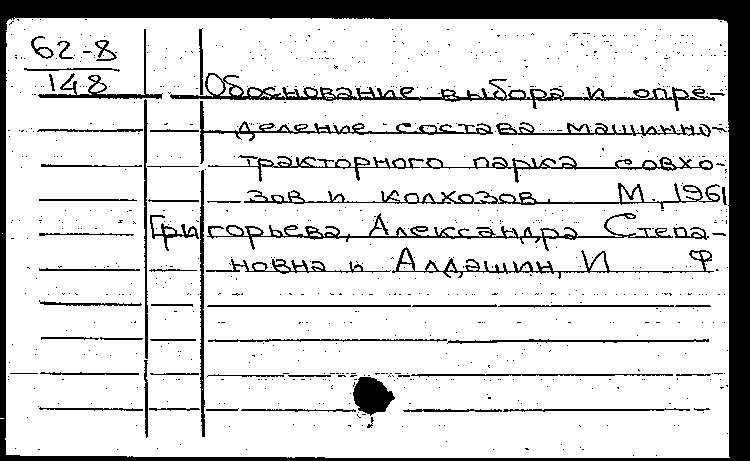 62-8
148
Обоснование выбора и опре-
деление состава машинно-
тракторного парка совхо-
зов и колхозов. М., 1961
Григорьева, Александра Степа-
новна и Алдашин, И Ф